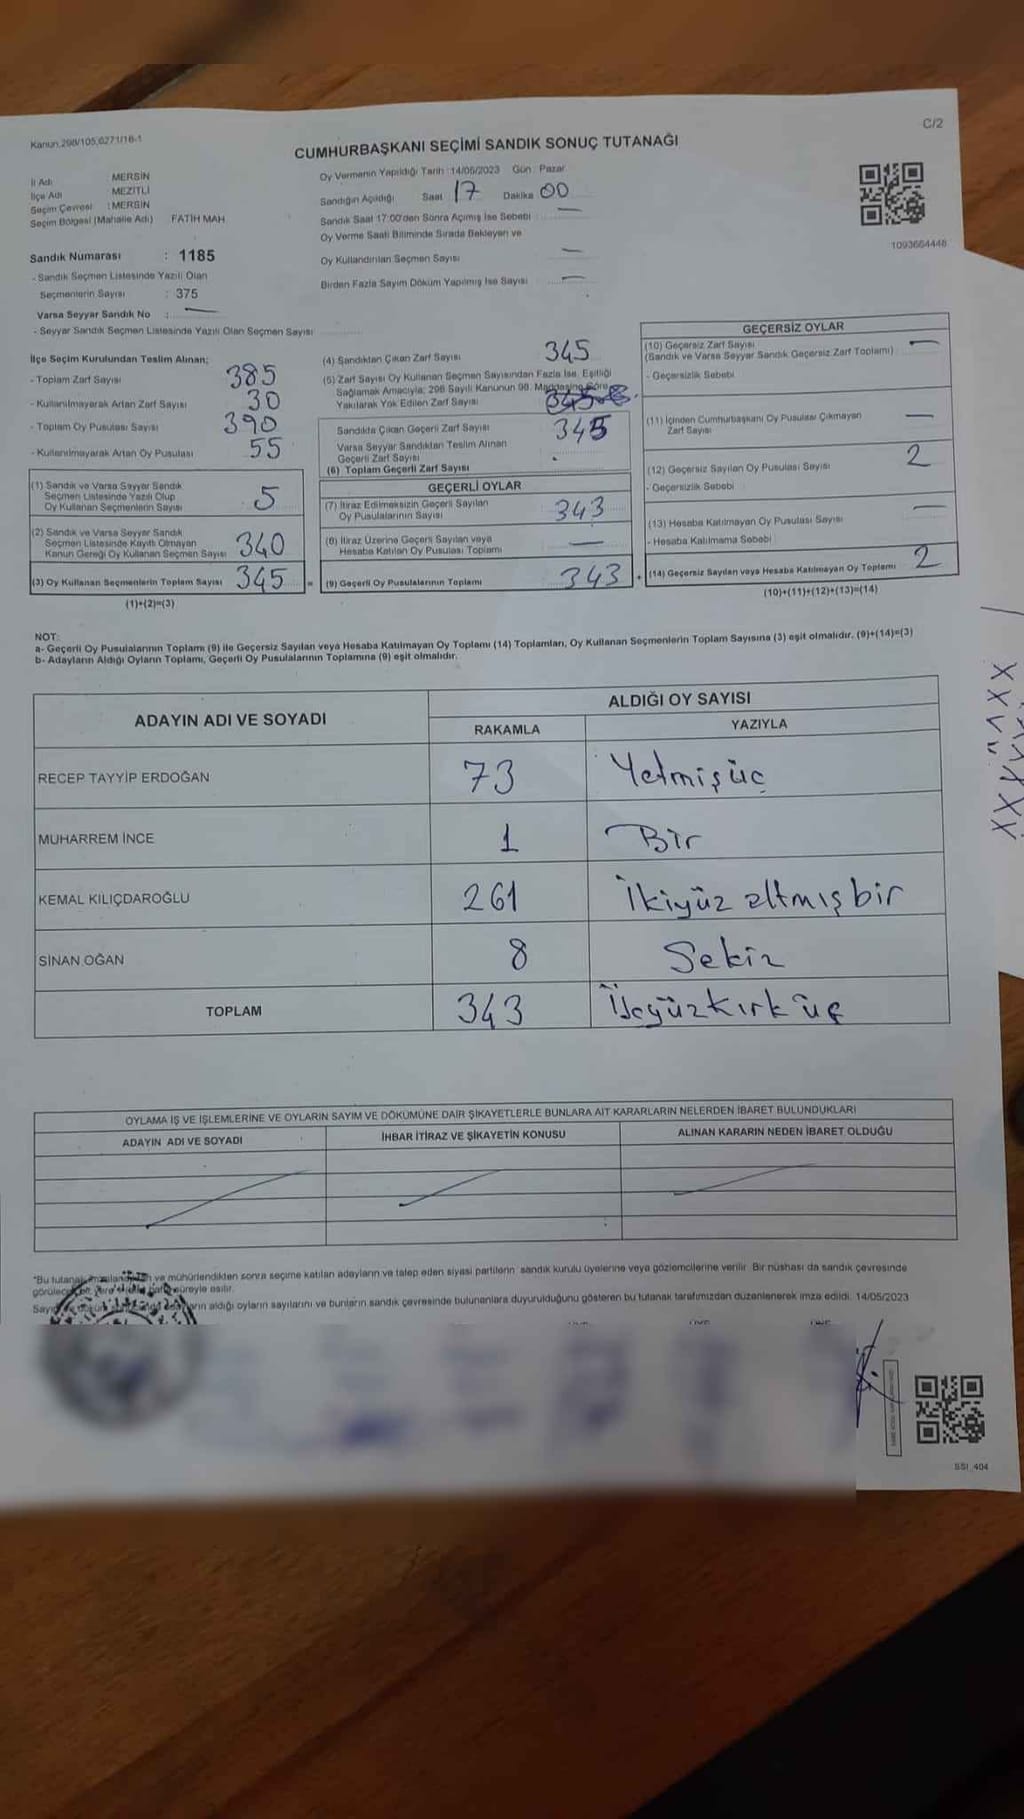 Kanun,298/105,6271/16-1
C/2
CUMHURBAŞKANI SEÇİMİ SANDIK SONUÇ TUTANAĞI
İl Adı MERSİN
İlçe Adı MEZİTLİ
Seçim Çevresi : MERSİN
Seçim Bölgesi (Mahalle Adı) FATİH MAH
Sandık Numarası : 1185
- Sandık Seçmen Listesinde Yazılı Olan
Seçmenlerin Sayısı : 375
Varsa Seyyar Sandık No : —
- Seyyar Sandık Seçmen Listesinde Yazılı Olan Seçmen Sayısı
Oy Vermenin Yapıldığı Tarih : 14/05/2023 Gün : Pazar
Sandığın Açıldığı Saat 17 Dakika 00
Sandık Saat 17:00'den Sonra Açımış İse Sebebi —
Oy Verme Saati Bitiminde Sırada Bekleyen ve
Oy Kullandırılan Seçmen Sayısı —
Birden Fazla Sayım Döküm Yapılmış İse Sayısı —
1093664448
İlçe Seçim Kurulundan Teslim Alınan;
- Toplam Zarf Sayısı 385
- Kullanılmayarak Artan Zarf Sayısı 30
- Toplam Oy Pusulası Sayısı 390
- Kullanılmayarak Artan Oy Pusulası 55
(1) Sandık ve Varsa Seyyar Sandık
Seçmen Listesinde Yazılı Olup
Oy Kullanan Seçmenlerin Sayısı 5
(2) Sandık ve Varsa Seyyar Sandık
Seçmen Listesinde Kayıtlı Olmayan
Kanun Gereği Oy Kullanan Seçmen Sayısı 340
(3) Oy Kullanan Seçmenlerin Toplam Sayısı 345 =
(1)+(2)=(3)
(4) Sandıktan Çıkan Zarf Sayısı 345
(5) Zarf Sayısı Oy Kullanan Seçmen Sayısından Fazla İse, Eşitliği
Sağlamak Amacıyla; 298 Sayılı Kanunun 98. Maddesine Göre
Yakılarak Yok Edilen Zarf Sayısı
Sandıkta Çıkan Geçerli Zarf Sayısı 345
Varsa Seyyar Sandıktan Teslim Alınan
Geçerli Zarf Sayısı
(6) Toplam Geçerli Zarf Sayısı
GEÇERLİ OYLAR
(7) İtiraz Edilmeksizin Geçerli Sayılan
Oy Pusulalarının Sayısı 343
(8) İtiraz Üzerine Geçerli Sayılan veya
Hesaba Katılan Oy Pusulası Toplamı —
(9) Geçerli Oy Pusulalarının Toplamı 343 +
GEÇERSİZ OYLAR
(10) Geçersiz Zarf Sayısı —
(Sandık ve Varsa Seyyar Sandık Geçersiz Zarf Toplamı)
- Geçersizlik Sebebi
(11) İçinden Cumhurbaşkanı Oy Pusulası Çıkmayan
Zarf Sayısı —
(12) Geçersiz Sayılan Oy Pusulası Sayısı 2
- Geçersizlik Sebebi
(13) Hesaba Katılmayan Oy Pusulası Sayısı —
- Hesaba Katılmama Sebebi
(14) Geçersiz Sayılan veya Hesaba Katılmayan Oy Toplamı 2
(10)+(11)+(12)+(13)=(14)
NOT:
a- Geçerli Oy Pusulalarının Toplamı (9) ile Geçersiz Sayılan veya Hesaba Katılmayan Oy Toplamı (14) Toplamları, Oy Kullanan Seçmenlerin Toplam Sayısına (3) eşit olmalıdır. (9)+(14)=(3)
b- Adayların Aldığı Oyların Toplamı, Geçerli Oy Pusulalarının Toplamına (9) eşit olmalıdır.
ADAYIN ADI VE SOYADI
ALDIĞI OY SAYISI
RAKAMLA YAZIYLA
RECEP TAYYİP ERDOĞAN 73 Yetmişüç
MUHARREM İNCE 1 Bir
KEMAL KILIÇDAROĞLU 261 İkiyüz altmışbir
SİNAN OĞAN 8 Sekiz
TOPLAM 343 Üçyüzkırküç
OYLAMA İŞ VE İŞLEMLERİNE VE OYLARIN SAYIM VE DÖKÜMÜNE DAİR ŞİKAYETLERLE BUNLARA AİT KARARLARIN NELERDEN İBARET BULUNDUKLARI
ADAYIN ADI VE SOYADI İHBAR İTİRAZ VE ŞİKAYETİN KONUSU ALINAN KARARIN NEDEN İBARET OLDUĞU
*Bu tutanak ve mühürlendikten sonra seçime katılan adayların ve talep eden siyasi partilerin sandık kurulu üyelerine veya gözlemcilerine verilir. Bir nüshası da sandık çevresinde
süreyle asılır.
aldığı oyların sayılarını ve bunların sandık çevresinde bulunanlara duyurulduğunu gösteren bu tutanak tarafımızdan düzenlenerek imza edildi. 14/05/2023
SSI_404